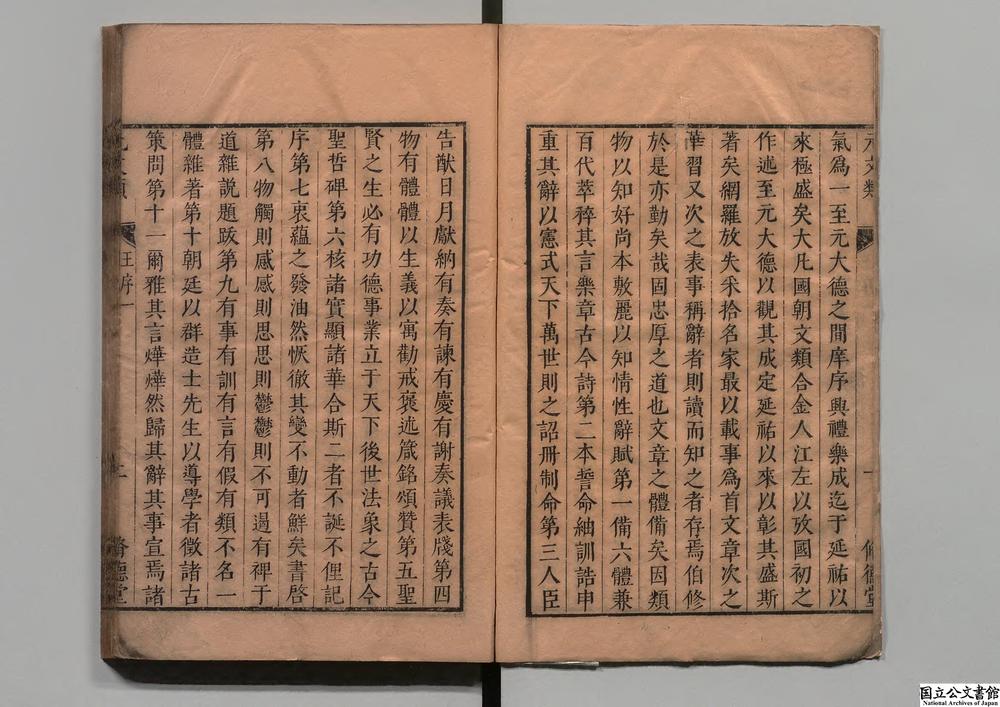 元文類
一
脩德堂
氣為一至元大德之間庠序興禮樂成迄于延祐以
來極盛矣大凡國朝文類合金人江左以攷國初之
作述至元大德以觀其成定延祐以來以彰其盛斯
著矣網羅放失采拾名家最以載事為首文章次之
華習又次之表事稱辭者則讀而知之者存焉伯修
於是亦勤矣哉固忠厚之道也文章之體備矣因類
物以知好尚本敷麗以知情性辭賦第一備六體兼
百代萃稡其言樂章古今詩第二本誓命紬訓誥申
重其辭以憲式天下萬世則之詔冊制命第三人臣
告猷日月獻納有奏有諫有慶有謝奏議表牋第四
物有體體以生義以寓勸戒褒述箴銘頌贊第五聖
賢之生必有功德事業立于天下後世法象之古今
聖哲碑第六核諸實顯諸華合斯二者不誕不俚記
序第七衷蘊之發油然恢徹其變不動者鮮矣書啓
第八物觸則感感則思思則鬱鬱則不可遏有裨于
道雜說題跋第九有事有訓有言有假有類不名一
體雜著第十朝廷以群造士先生以導學者徵諸古
策問第十一爾雅其言燁燁然歸其辭其事宣焉諸
王序一
二
脩德堂
国立公文書館
National Archives of Japan